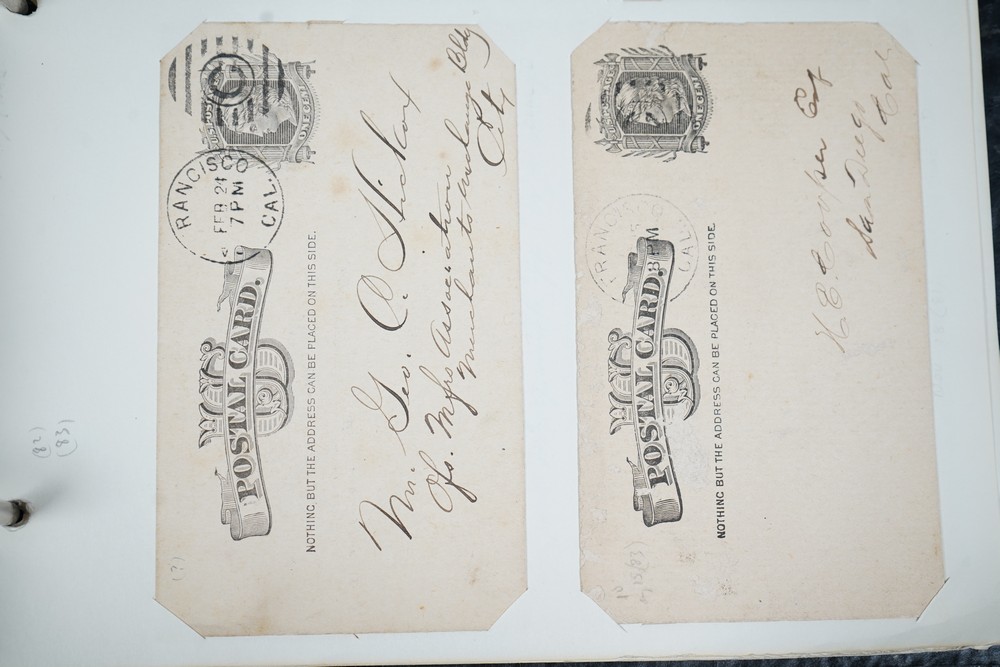 RANCISCO
FEB 24
7 PM
CAL.
ONE CENT
POSTAL CARD.
NOTHING BUT THE ADDRESS CAN BE PLACED ON THIS SIDE.
Mr. Geo. C. Hickox
Ofs. Mfrs Association
Merchants Exchange Bldg
City
(?)
(82)
(83)
ONE CENT
FRANCISCO
CAL.
POSTAL CARD.
NOTHING BUT THE ADDRESS CAN BE PLACED ON THIS SIDE.
H C Cooper Esq
San Diego
Cal